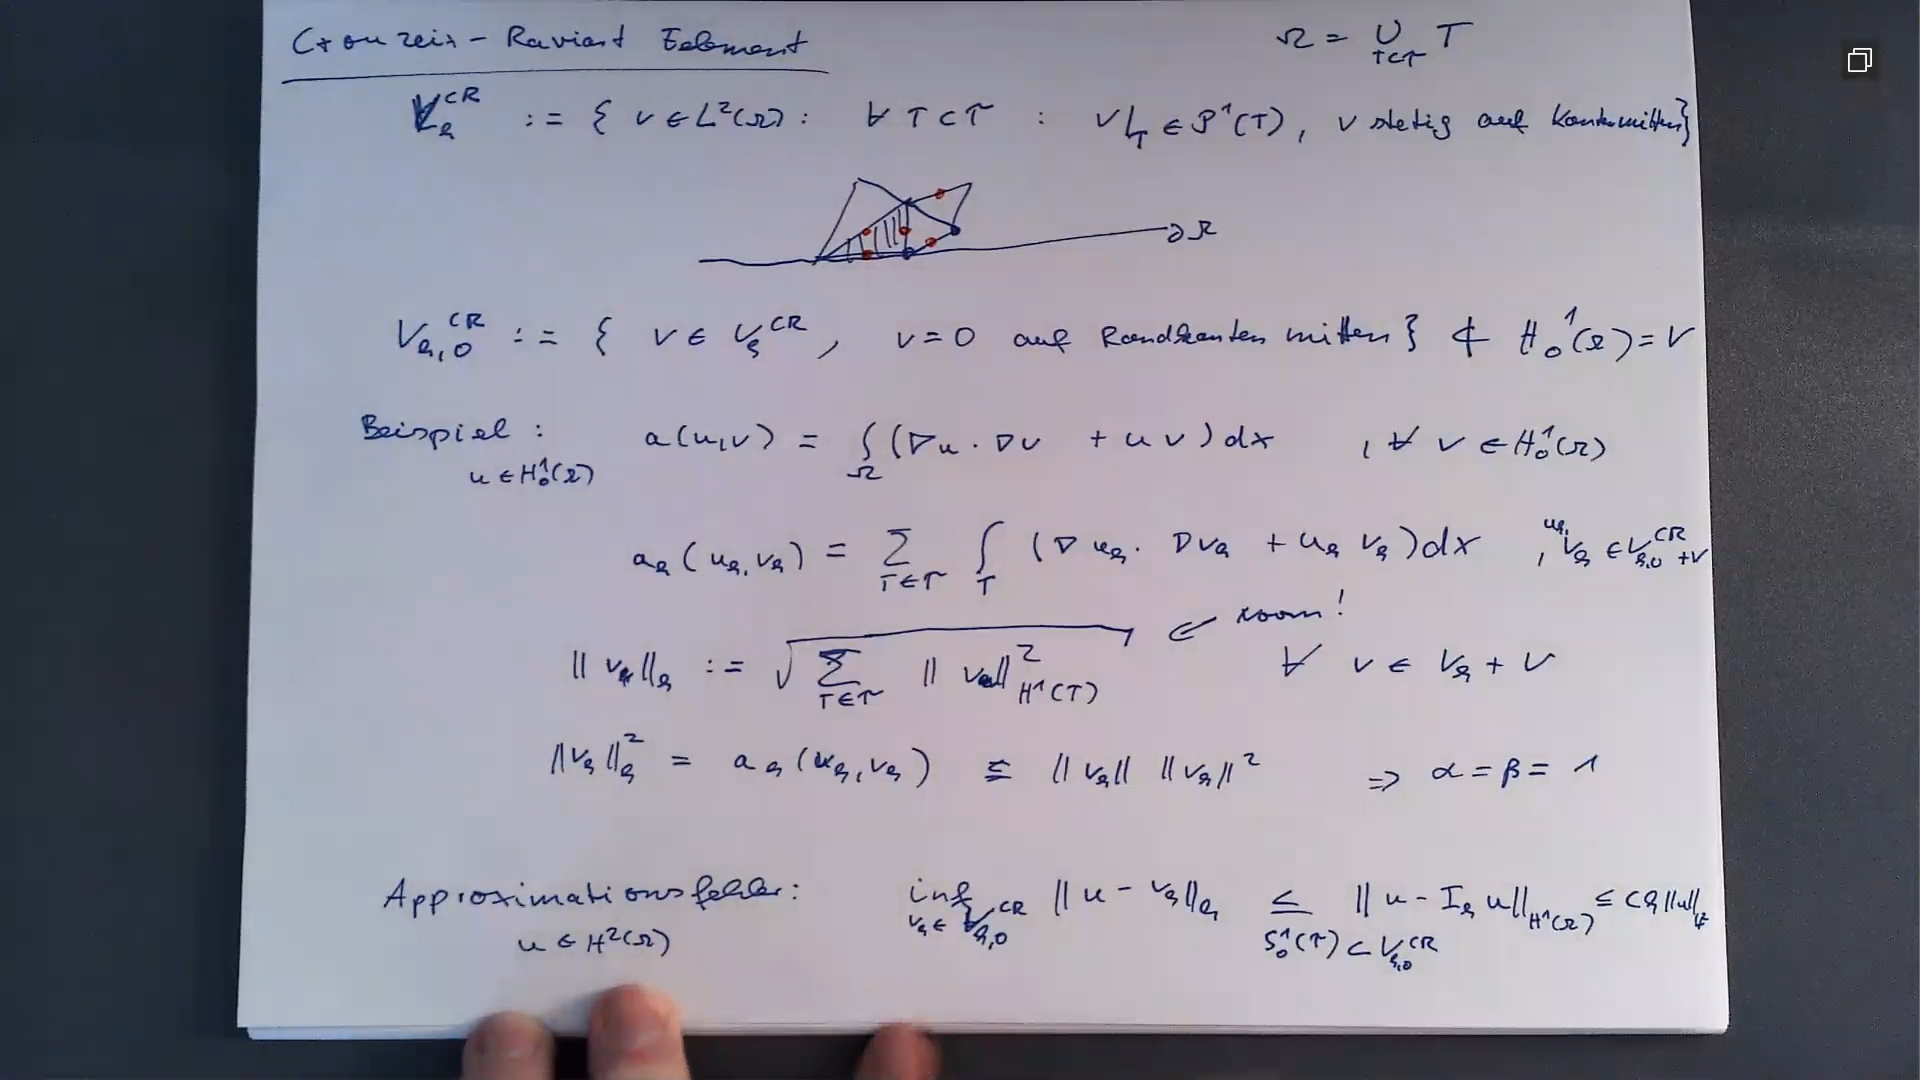 Crouzeix-Raviart Element Ω = ∪_{T∈𝒯} T
V_h^{CR} := { v ∈ L²(Ω) : ∀ T ∈ 𝒯 : v|_T ∈ P¹(T), v stetig auf Kantenmitten }
∂Ω
V_{h,0}^{CR} := { v ∈ V_h^{CR}, v = 0 auf Randkantenmitten } ⊄ H₀¹(Ω) = V
Beispiel : a(u,v) = ∫_Ω (∇u · ∇v + u v) dx , ∀ v ∈ H₀¹(Ω)
u ∈ H₀¹(Ω)
a_h(u_h, v_h) = Σ_{T∈𝒯} ∫_T (∇u_h · ∇v_h + u_h v_h) dx , u_h, v_h ∈ V_{h,0}^{CR} + V
← norm!
‖v_h‖_h := √(Σ_{T∈𝒯} ‖v_h‖²_{H¹(T)}) ∀ v ∈ V_h + V
‖v_h‖_h² = a_h(u_h, v_h) ≤ ‖v_h‖ ‖v_h‖² ⇒ α = β = 1
Approximationsfehler : inf_{v_h ∈ V_{h,0}^{CR}} ‖u - v_h‖_h ≤ ‖u - I_h u‖_{H¹(Ω)} ≤ C h ‖u‖
u ∈ H²(Ω) S₀¹(𝒯) ⊂ V_{h,0}^{CR}